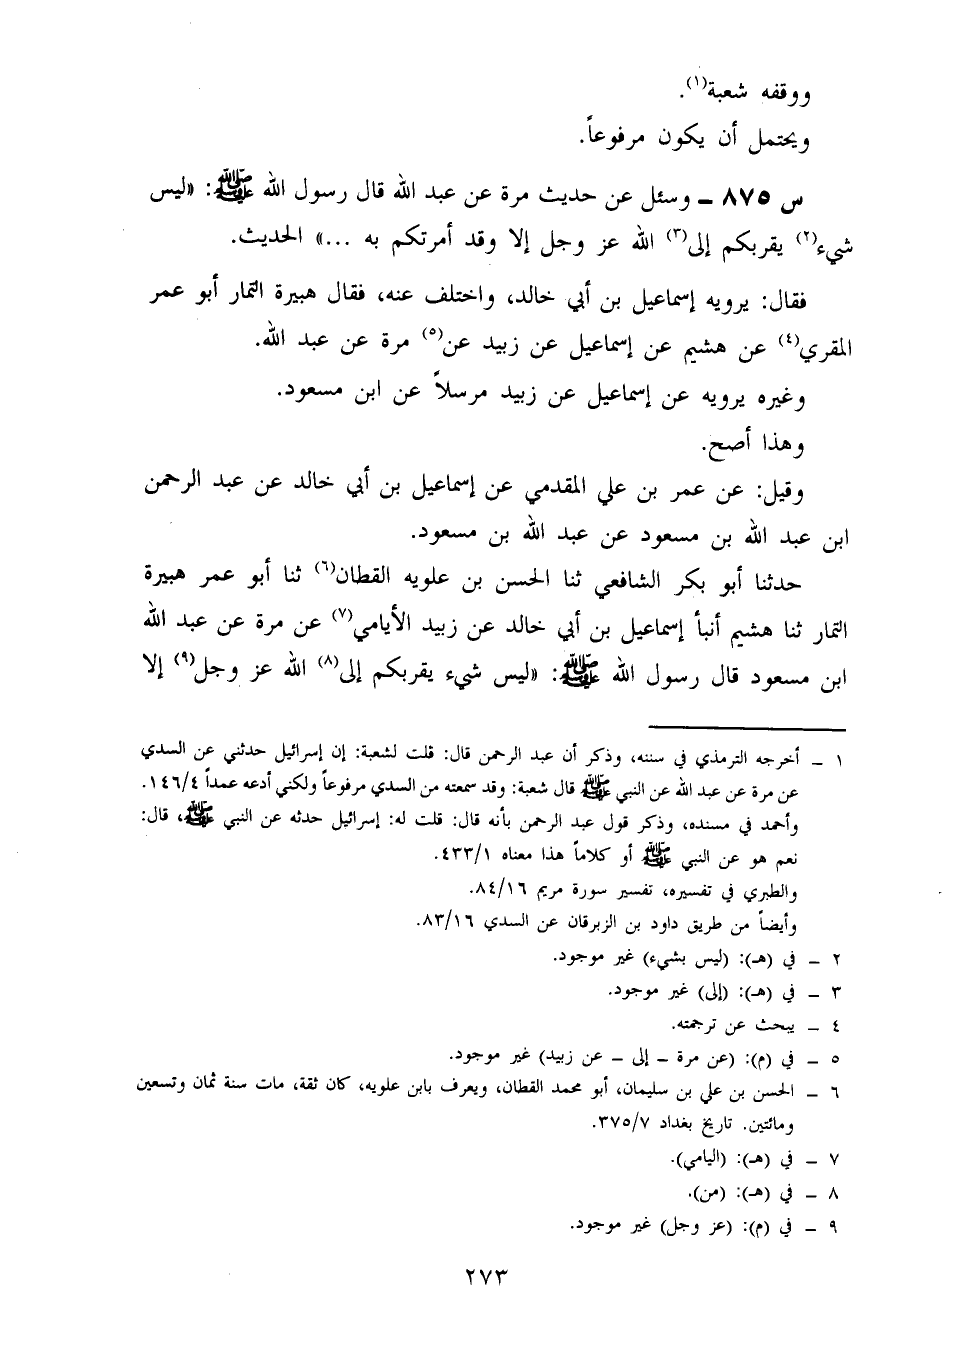 ووقفه شعبة(١).
ويحتمل أن يكون مرفوعاً.
س ٨٧٥ ـ وسئل عن حديث مرة عن عبد الله قال رسول الله ﷺ: «ليس
شيء(٢) يقربكم إلى(٣) الله عز وجل إلا وقد أمرتكم به ...» الحديث.
فقال: يرويه إسماعيل بن أبي خالد، واختلف عنه، فقال هبيرة التمار أبو عمر
المقري(٤) عن هشيم عن إسماعيل عن زبيد عن(٥) مرة عن عبد الله.
وغيره يرويه عن إسماعيل عن زبيد مرسلاً عن ابن مسعود.
وهذا أصح.
وقيل: عن عمر بن علي المقدمي عن إسماعيل بن أبي خالد عن عبد الرحمن
ابن عبد الله بن مسعود عن عبد الله بن مسعود.
حدثنا أبو بكر الشافعي ثنا الحسن بن علويه القطان(٦) ثنا أبو عمر هبيرة
التمار ثنا هشيم أنبأ إسماعيل بن أبي خالد عن زبيد الأيامي(٧) عن مرة عن عبد الله
ابن مسعود قال رسول الله ﷺ: «ليس شيء يقربكم إلى(٨) الله عز وجل(٩) إلا
١ ـ أخرجه الترمذي في سننه، وذكر أن عبد الرحمن قال: قلت لشعبة: إن إسرائيل حدثني عن السدي
عن مرة عن عبد الله عن النبي ﷺ قال شعبة: وقد سمعته من السدي مرفوعاً ولكني أدعه عمداً ١٤٦/٤.
وأحمد في مسنده، وذكر قول عبد الرحمن بأنه قال: قلت له: إسرائيل حدثه عن النبي ﷺ، قال:
نعم هو عن النبي ﷺ أو كلاماً هذا معناه ٤٣٣/١.
والطبري في تفسيره، تفسير سورة مريم ٨٤/١٦.
وأيضاً من طريق داود بن الزبرقان عن السدي ٨٣/١٦.
٢ ـ في (هـ): (ليس بشيء) غير موجود.
٣ ـ في (هـ): (إلى) غير موجود.
٤ ـ يبحث عن ترجمته.
٥ ـ في (م): (عن مرة ـ إلى ـ عن زبيد) غير موجود.
٦ ـ الحسن بن علي بن سليمان، أبو محمد القطان، ويعرف بابن علويه، كان ثقة، مات سنة ثمان وتسعين
ومائتين. تاريخ بغداد ٣٧٥/٧.
٧ ـ في (هـ): (اليامي).
٨ ـ في (هـ): (من).
٩ ـ في (م): (عز وجل) غير موجود.
٢٧٣